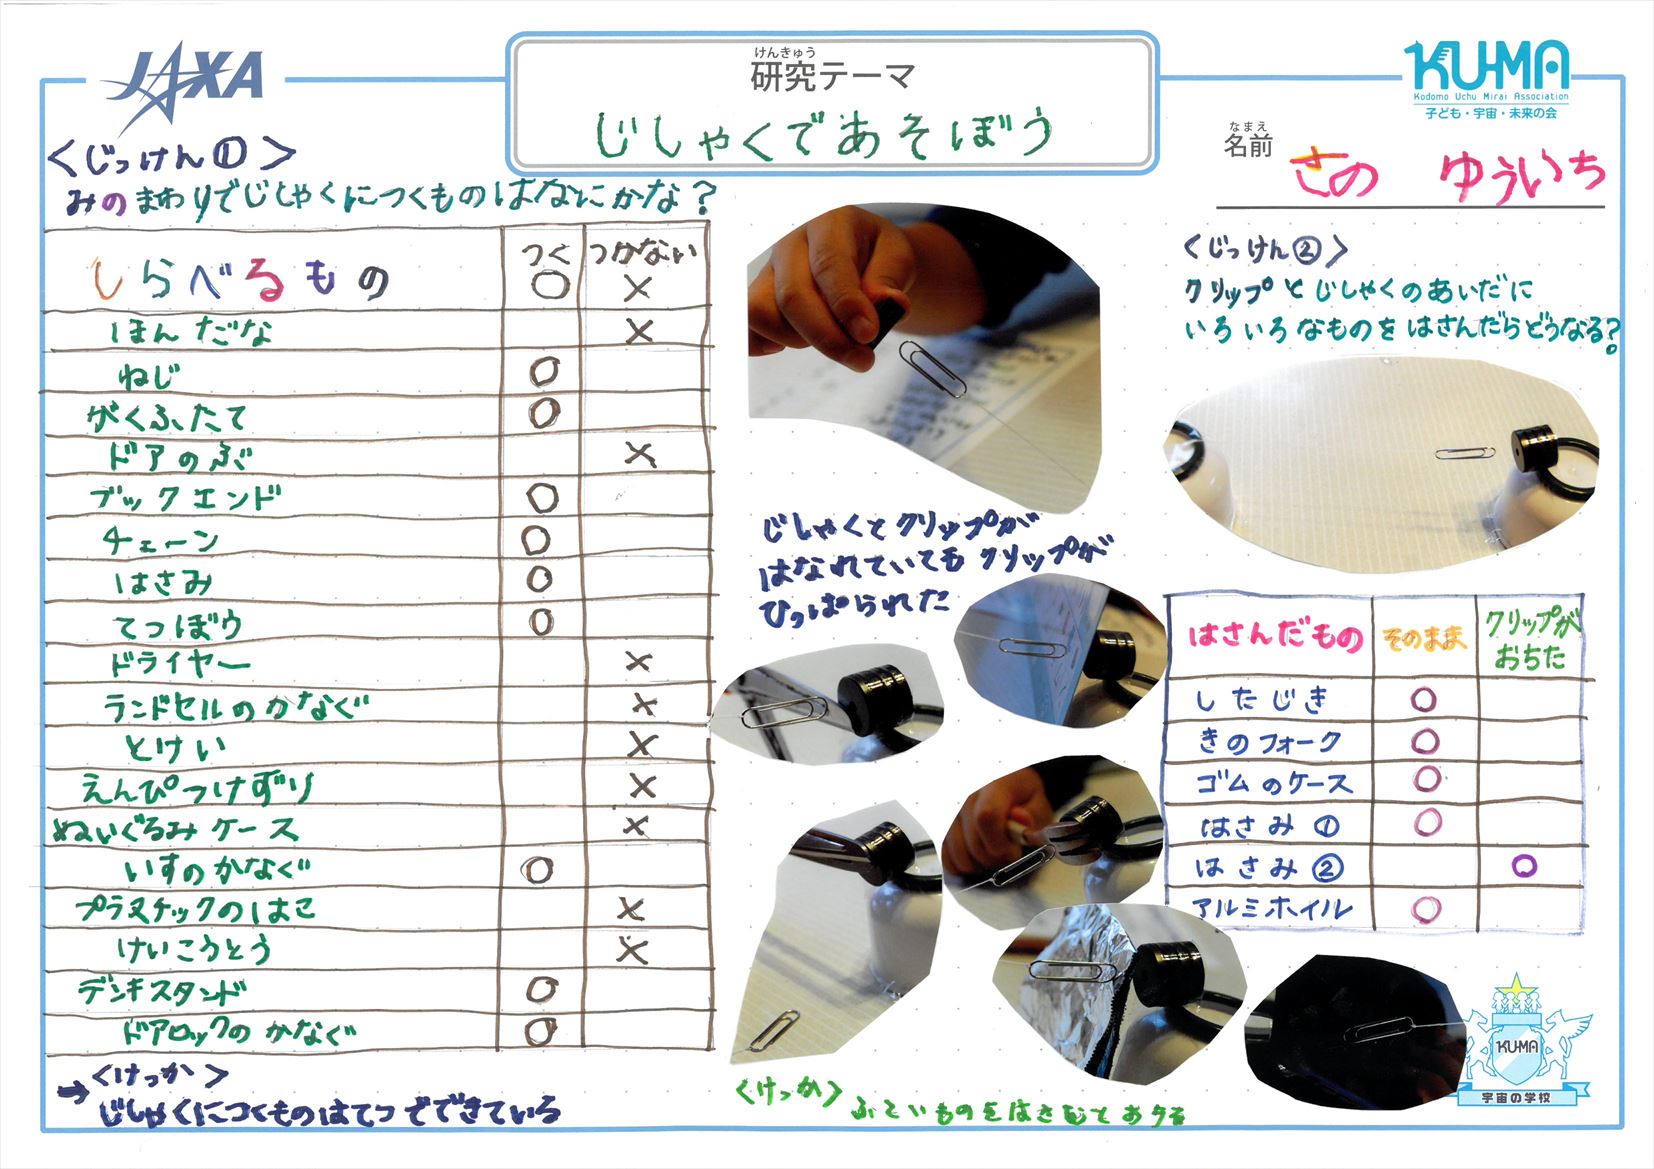 JAXA
けんきゅう
研究テーマ
じしゃくであそぼう
KU-MA
Kodomo Uchu Mirai Association
子ども・宇宙・未来の会
なまえ
名前
さの ゆういち
<じっけん①>
みのまわりでじしゃくにつくものはなにかな?
しらべるもの つく ○ つかない ×
ほんだな ×
ねじ ○
がくふたて ○
ドアのぶ ×
ブックエンド ○
チェーン ○
はさみ ○
てつぼう ○
ドライヤー ×
ランドセルのかなぐ ×
とけい ×
えんぴつけずり ×
ぬいぐるみケース ×
いすのかなぐ ○
プラスチックのはこ ×
けいこうとう ×
デンキスタンド ○
ドアロックのかなぐ ○
<けっか>
→じしゃくにつくものはてつでできている
じしゃくとクリップが
はなれていてもクリップが
ひっぱられた
<じっけん②>
クリップとじしゃくのあいだに
いろいろなものをはさんだらどうなる?
はさんだもの そのまま クリップがおちた
したじき ○
きのフォーク ○
ゴムのケース ○
はさみ① ○
はさみ② ○
アルミホイル ○
<けっか>
ふといものをはさむとおちる
KU-MA
宇宙の学校